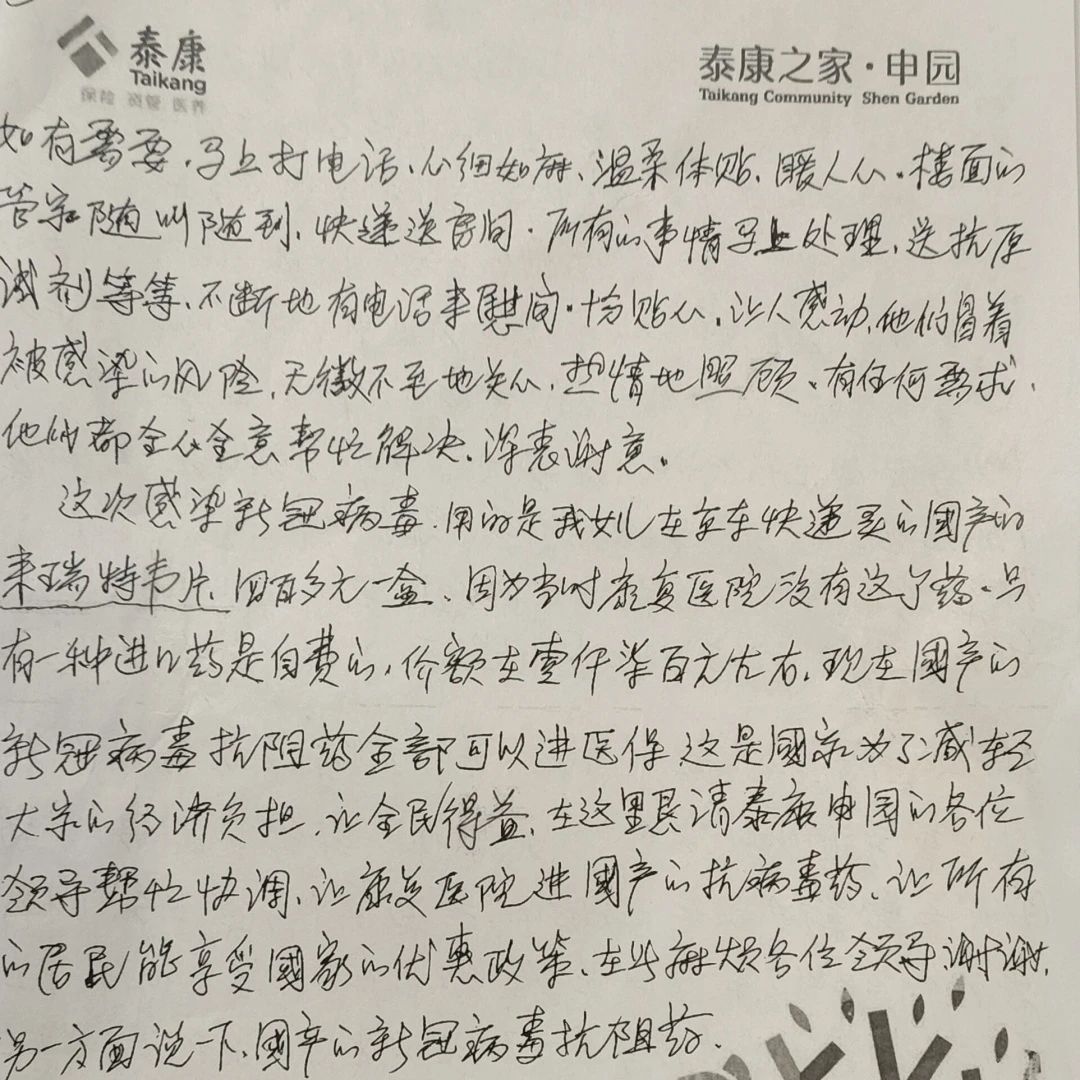 泰康
Taikang
保险 资管 医养
泰康之家·申园
Taikang Community Shen Garden
如有需要、马上打电话、心细如麻、温柔体贴、暖人心。楼面的
管家随叫随到、快递送房间。所有的事情马上处理、送抗原
试剂等等、不断地有电话来慰问。十分贴心、让人感动、他们冒着
被感染的风险、无微不至地关心、热情地照顾。有任何要求、
他们都全心全意帮忙解决、深表谢意。
这次感染新冠病毒、用的是我女儿在京东快递买的國产的
来瑞特韦片、四百多元一盒、因为当时康复医院没有这个药。只
有一种进口药是自费的、价额在壹仟柒百元左右、现在國产的
新冠病毒抗阻药全部可以进医保 这是國家为了减轻
大家的经济负担、让全民得益、在这里恳请泰康申园的各位
领导帮忙协调、让康复医院进國产的抗病毒药、让所有
的居民能享受國家的优惠政策、在此麻烦各位领导、谢谢、
另一方面说一下、國产的新冠病毒抗阻药、